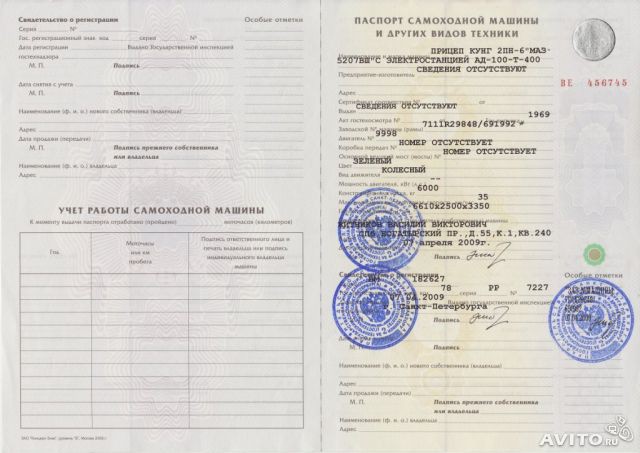 Свидетельство о регистрации Особые отметки
Серия №
Гос. регистрационный знак. код серия №
Дата регистрации Выдано Государственной инспекцией
гостехнадзора
М. П. Подпись
Дата снятия с учета
М. П. Подпись
Наименование (ф. и. о.) нового собственника (владельца)
Адрес
Дата продажи (передачи)
М. П. Подпись прежнего собственника
или владельца
УЧЕТ РАБОТЫ САМОХОДНОЙ МАШИНЫ
К моменту выдачи паспорта отработано (пройдено) моточасов (километров)
Год
Моточасы
или км
пробега
Подпись ответственного лица и
печать владельца или подпись
индивидуального владельца
машины
ПАСПОРТ САМОХОДНОЙ МАШИНЫ
И ДРУГИХ ВИДОВ ТЕХНИКИ
ПРИЦЕП КУНГ 2ПН-6"МАЗ-
5207ВШ"С ЭЛЕКТРОСТАНЦИЕЙ АД-100-Т-400
СВЕДЕНИЯ ОТСУТСТВУЮТ
Предприятие-изготовитель
ВЕ 456745
Адрес
Сертификат соответствия №
СВЕДЕНИЯ ОТСУТСТВУЮТ
Выдано
1969
Акт гостехосмотра №
7111R29848/691992 *
Заводской № машины (рамы)
9998
Двигатель №
НОМЕР ОТСУТСТВУЕТ
Коробка передач №
НОМЕР ОТСУТСТВУЕТ
Основной ведущий мост (мосты) №
ЗЕЛЕНЫЙ
Цвет
КОЛЕСНЫЙ
Вид движителя
--
Мощность двигателя, кВт
6000
35
6610x2500x3350
ЖИТНИКОВ ВАСИЛИЙ ВИКТОРОВИЧ
СПБ, БОГАТЫРСКИЙ ПР.,Д.55,К.1,КВ.240
07 апреля 2009г.
М. П. Подпись
Свидетельство о регистрации Особые отметки
182627
78 серия РР № 7227
07.04.2009 Выдано Государственной инспекцией
г. Санкт-Петербурга
Подпись
Дата снятия с учета
М. П. Подпись
Наименование (ф. и. о.) нового собственника (владельца)
Адрес
Дата продажи (передачи)
М. П. Подпись прежнего собственника
или владельца
Наименование (ф. и. о.) нового собственника (владельца)
Адрес
AVITO.ru